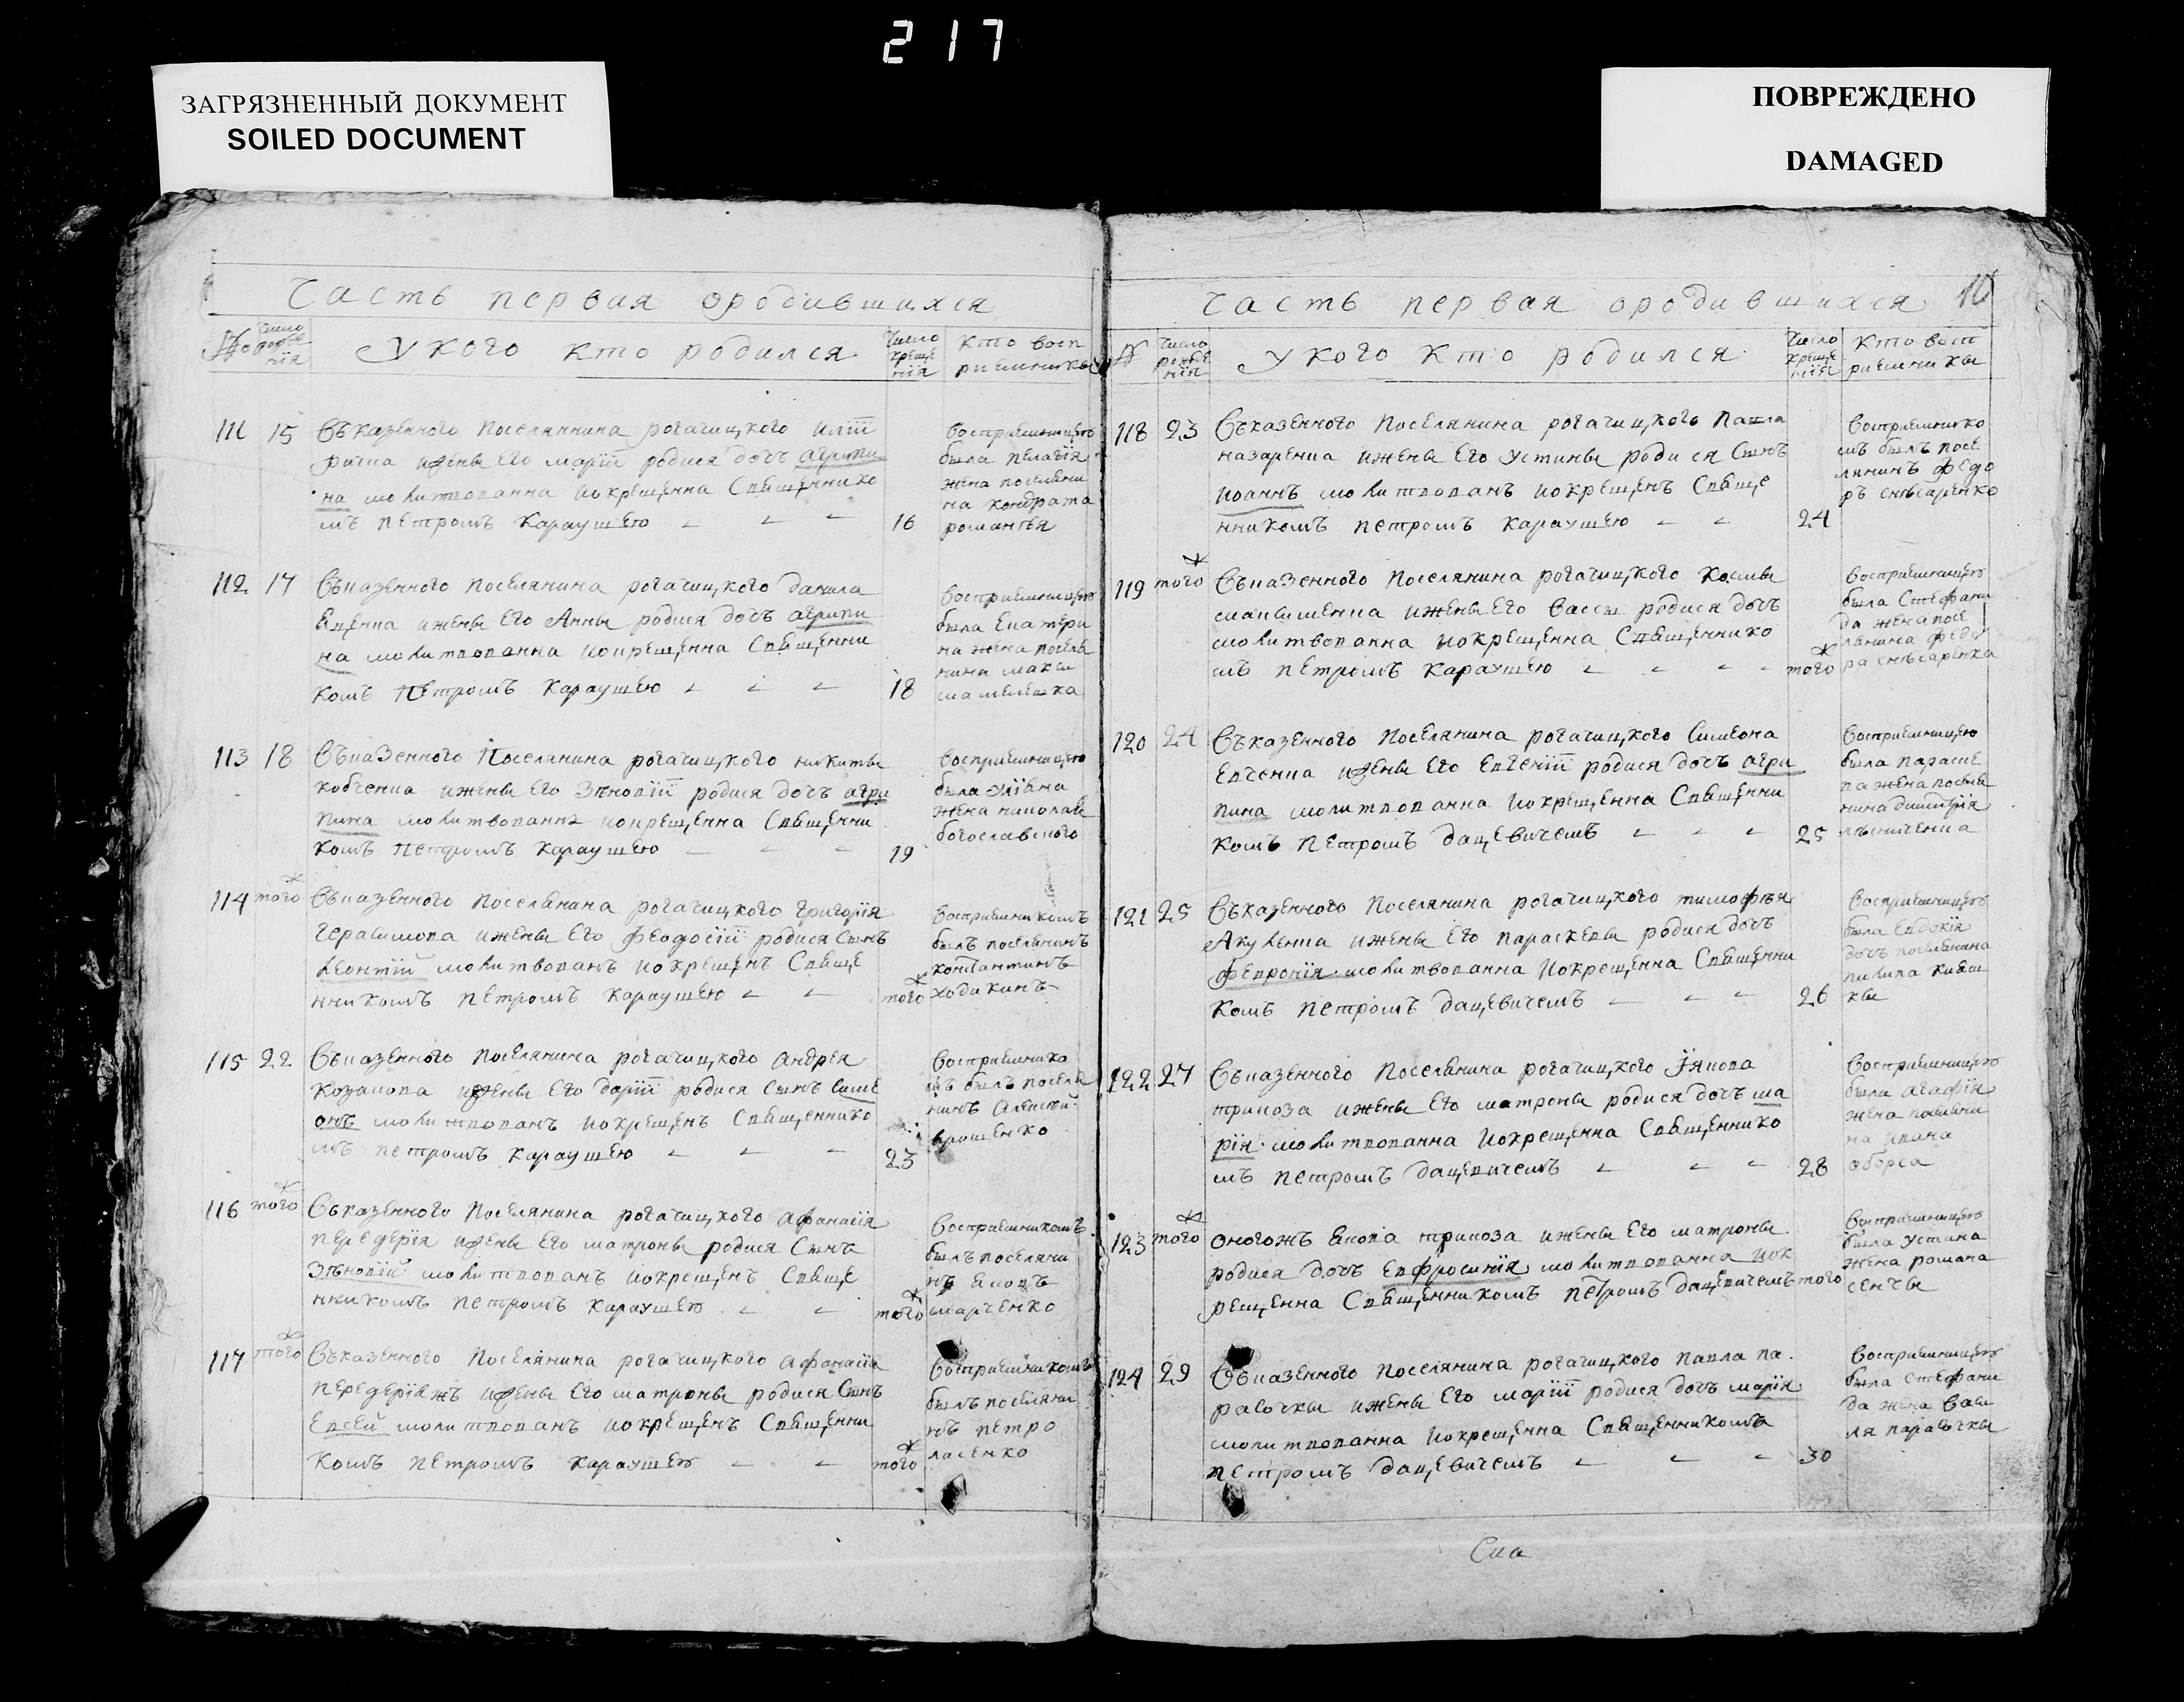 217
ЗАГРЯЗНЕННЫЙ ДОКУМЕНТ
SOILED DOCUMENT
ПОВРЕЖДЕНО
DAMAGED
Часть первая ородившихся
№ Число рожде нїя
У кого кто родился
Число креще нїя
Кто восп
риемникы
111 15 Съказенного поселянина рогачицкого илїи
рична ижены Его марїи родися дочъ агрипи
на молитвованна иокрещенна Священнико
мъ петромъ Караушею 16
Восприемницею
была пелагїя
жена поселяни
на кондрата
романтея
112 17 Съказенного поселянина рогачицкого данила
Яценка ижены Его Анны родися дочъ агрипи
на молитвованна иокрещенна Священни
комъ Петромъ Караушею 18
восприемницею
была Екатери
на жена поселя
нина макси
ма
113 18 Съказенного Поселянина рогачицкого никиты
кобченка ижены Его Зѣновїи родися дочъ агри
пина молитвованна иокрещенна Священни
комъ петромъ Караушею 19
восприемницею
была улїяна
жена николая
богославского
114 того Съказенного поселянина рогачицкого григорїя
герасимова ижены Его феодосїи родися Сынъ
леонтїй молитвованъ иокрещенъ Свяще
нникомъ петромъ Караушею того
Восприемникомъ
былъ поселянинъ
константинъ
ходакинъ
115 22 Съказенного поселянина рогачицкого андрея
Козакова ижены Его дарїи родися Сынъ симе
онъ молитвованъ иокрещенъ Священнико
мъ петромъ Караушею 23
Восприемнико
мъ былъ поселя
нинъ Алексѣй
ярошенко
116 того Съказенного поселянина рогачицкого афанасїя
передерїя ижены Его матроны родися Сынъ
Зѣновїй молитвованъ иокрещенъ Свяще
нникомъ петромъ Караушею того
Восприемникомъ
былъ поселяни
нъ яковъ
марченко
117 того Съказенного Поселянина рогачицкого афанасїя
передерїяжъ ижены Его матроны родися Сынъ
Евсей молитвованъ иокрещенъ Священни
комъ петромъ Караушею того
Восприемникомъ
былъ поселяни
нъ петро
ласенко
Часть первая ородившихся 10
№ Число рожде нїя
У кого кто родился
Число креще нїя
Кто восп
риемникы
118 23 Съказенного Поселянина рогачицкого павла
назаренка ижены Его устины родися Сынъ
иоаннъ молитвованъ иокрещенъ Свяще
нникомъ петромъ Караушею 24
Восприемнико
мъ былъ посе
лянинъ федо
ръ снѣсаренко
119 того Съказенного Поселянина рогачицкого космы
ижены Его вассы родися дочъ
молитвованна иокрещенна Священнико
мъ петромъ Караушею того
Восприемницею
была Стефани
да жена посе
лянина федо
ра снѣсаренка
120 24 Съказенного поселянина рогачицкого Симеона
Евченка ижены Его Евгенїи родися дочъ агри
пина молитвованна иокрещенна Священни
комъ петромъ дацевичемъ 25
восприемницею
была параске
ва жена поселя
нина димитрїя
лѣниченка
121 25 Съказенного поселянина рогачицкого тимофѣя
Акуленка ижены Его параскевы родися дочъ
февронїя молитвованна Иокрещенна Священни
комъ петромъ дацевичемъ 26
Восприемницею
была Евдокїя
дочъ поселянина
пилипа кияш
кы
122 27 Съказенного Поселянина рогачицкого їякова
трикоза ижены Его матроны родися дочъ ма
рїя молитвованна Иокрещенна Священнико
мъ петромъ дацевичемъ 28
Восприемницею
была агафїя
жена поселяни
на ивана
оборса
123 того оногожъ якова трикоза ижены Его матроны
родися дочъ Евфросинїя молитвованна иок
рещенна Священникомъ петромъ дацевичемъ того
Восприемницею
была устина
жена романа
сенчы
124 29 Съказенного поселянина рогачицкого павла па
равочкы ижены Его марїи родися дочъ марїя
молитвованна Иокрещенна Священникомъ
петромъ дацевичемъ 30
Восприемницею
была стефани
да жена васи
ля паравочкы